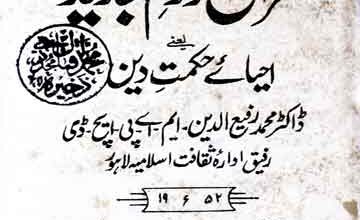 قرآن اور علم جدید
یعنے
احیائے حکمت دین
ڈاکٹر محمد رفیع الدین - ایم - اے - پی - ایچ - ڈی
رفیق ادارۂ ثقافت اسلامیہ لاہور
۱۹۵۲ ۶